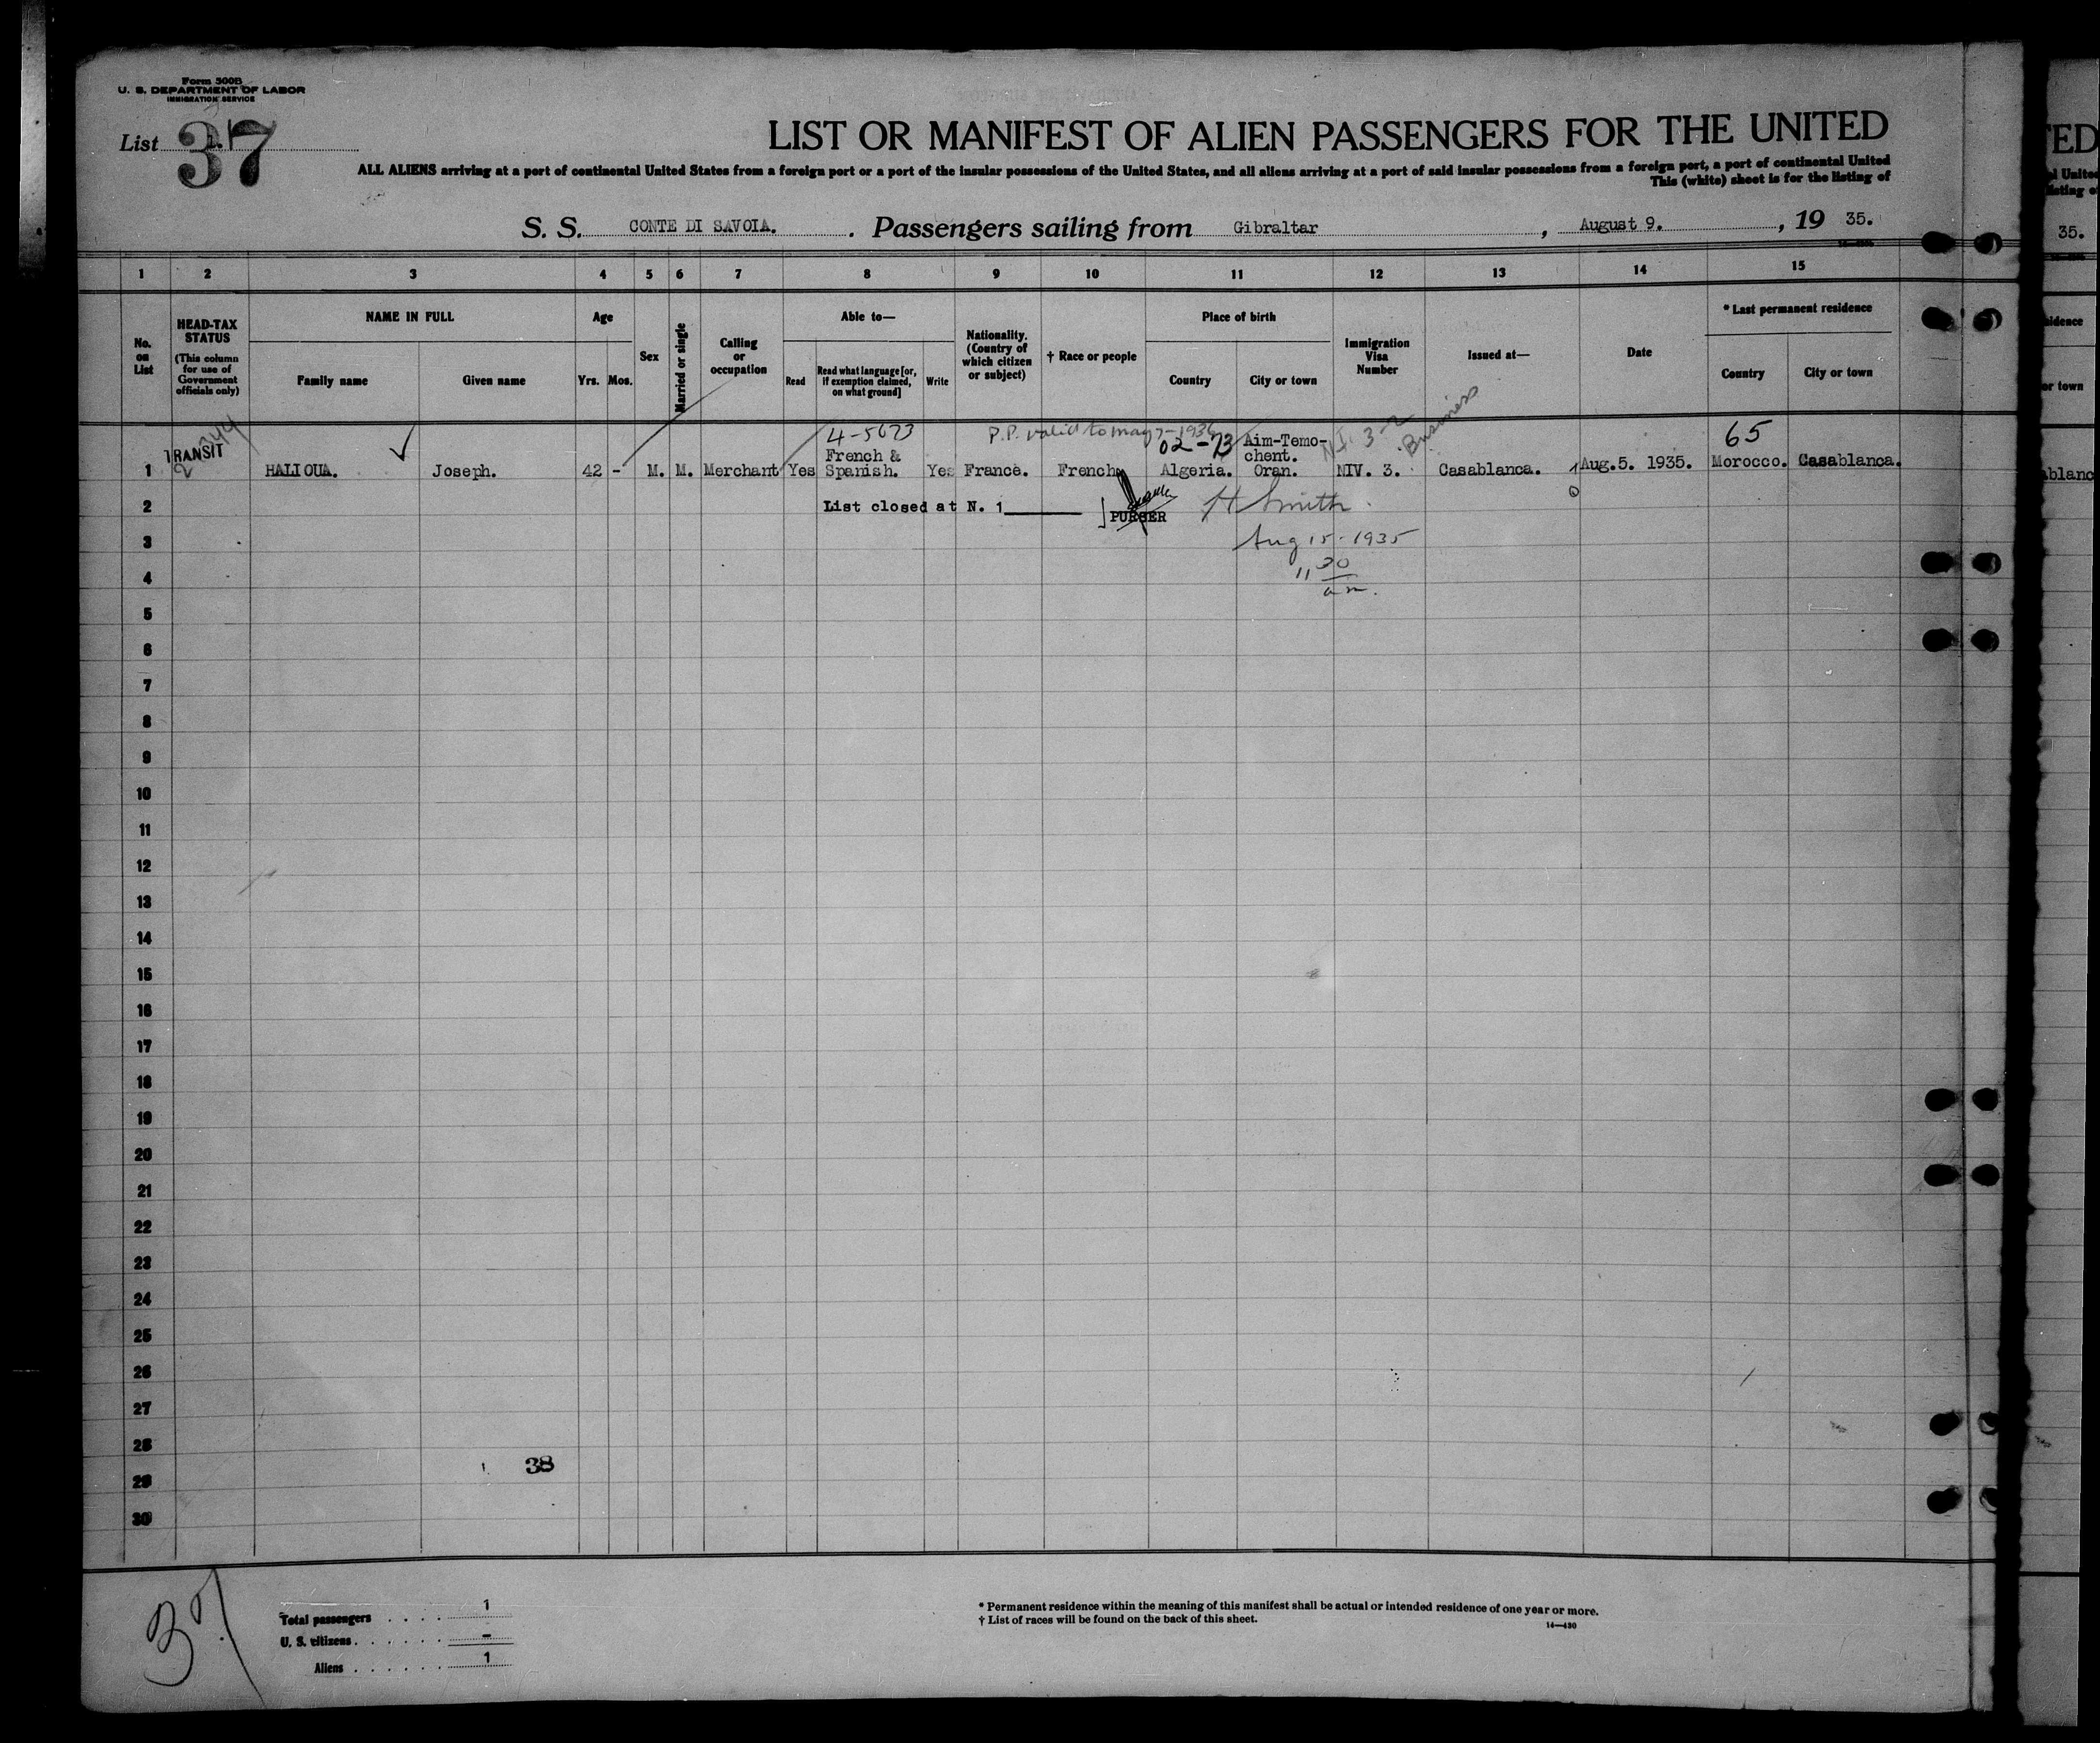 Form 500B
U. S. DEPARTMENT OF LABOR
IMMIGRATION SERVICE
List 37
LIST OR MANIFEST OF ALIEN PASSENGERS FOR THE UNITED
ALL ALIENS arriving at a port of continental United States from a foreign port or a port of the insular possessions of the United States, and all aliens arriving at a port of said insular possessions from a foreign port, a port of continental United
This (white) sheet is for the listing of
S. S. CONTE DI SAVOIA. Passengers sailing from Gibraltar, August 9., 19 35.
1 2 3 4 5 6 7 8 9 10 11 12 13 14 15
No. on List
HEAD-TAX STATUS (This column for use of Government officials only)
NAME IN FULL
Family name
Given name
Age
Yrs. Mos.
Sex
Married or single
Calling or occupation
Able to—
Read
Read what language [or, if exemption claimed, on what ground]
Write
Nationality. (Country of which citizen or subject)
† Race or people
Place of birth
Country
City or town
Immigration Visa Number
Issued at—
Date
* Last permanent residence
Country
City or town
4-5673 P.P. valid to may 7-1936 02-73 Business 65
TRANSIT
1 HALIOUA. Joseph. 42 - M. M. Merchant Yes French & Spanish. Yes France. French Algeria. Aim-Temo-chent. Oran. NIV. 3. Casablanca. Aug.5. 1935. Morocco. Casablanca.
2 List closed at N. 1 PURSER H Smith
3 Aug 15-1935
4 11 30 am.
5
6
7
8
9
10
11
12
13
14
15
16
17
18
19
20
21
22
23
24
25
26
27
28
38
29
30
Total passengers . . . . 1
U. S. citizens . . . . . . –
Aliens . . . . . . 1
* Permanent residence within the meaning of this manifest shall be actual or intended residence of one year or more.
† List of races will be found on the back of this sheet.
14—430